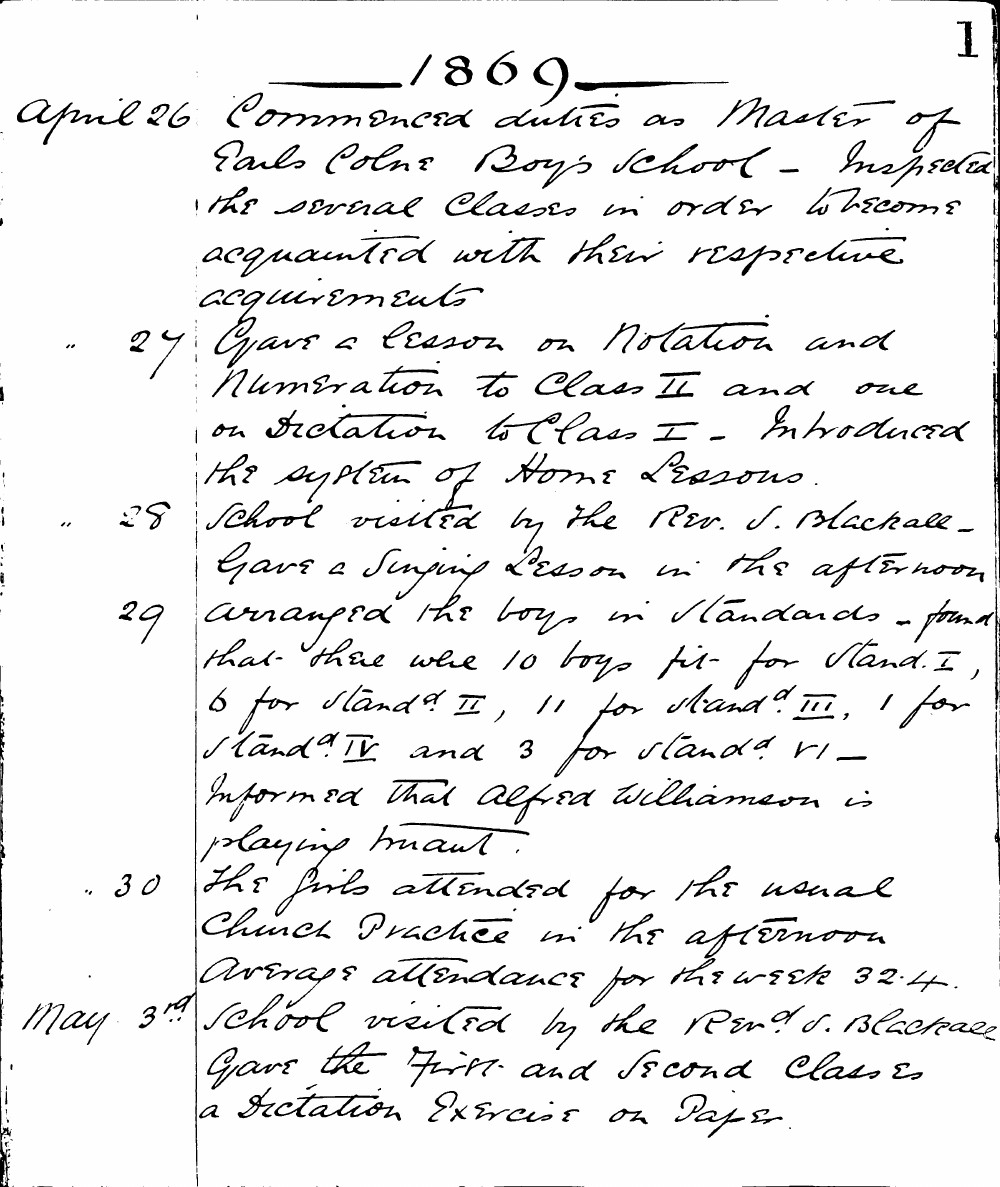 1
1869
April 26 Commenced duties as Master of
Earls Colne Boy's School - Inspected
the several Classes in order to become
acquainted with their respective
acquirements
" 27 Gave a lesson on Notation and
Numeration to Class II and one
on Dictation to Class I - Introduced
the system of Home Lessons.
" 28 School visited by the Rev. S. Blackall -
Gave a Singing Lesson in the afternoon
29 Arranged the boys in Standards - found
that there were 10 boys fit for Stand. I,
6 for Standd. II, 11 for Standd. III, 1 for
Standd. IV and 3 for Standd. VI -
Informed that Alfred Williamson is
playing truant.
" 30 The girls attended for the usual
Church Practice in the afternoon
Average attendance for the week 32.4.
May 3rd. School visited by the Revd. S. Blackall
Gave the First and Second Classes
a Dictation Exercise on Paper.